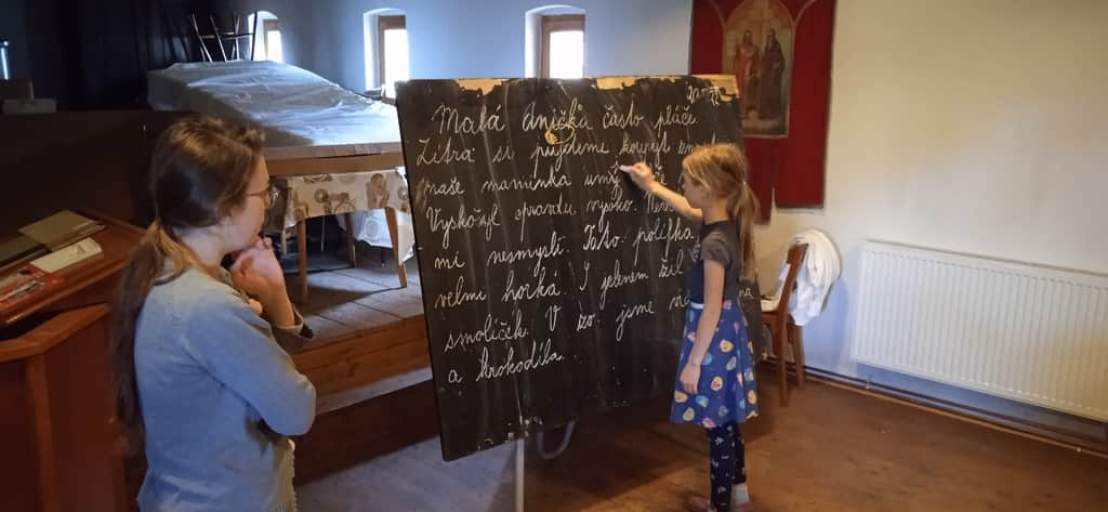 Malá anička často pláče
Zítra si půjdeme koupyt
naše maminka umý
Vyskočyl opravdu vysoko.
mi nesmyslí. Tato polífka
velmi horká. I jelenem žil
smolíček. V zo. jsme
a krokodíla.